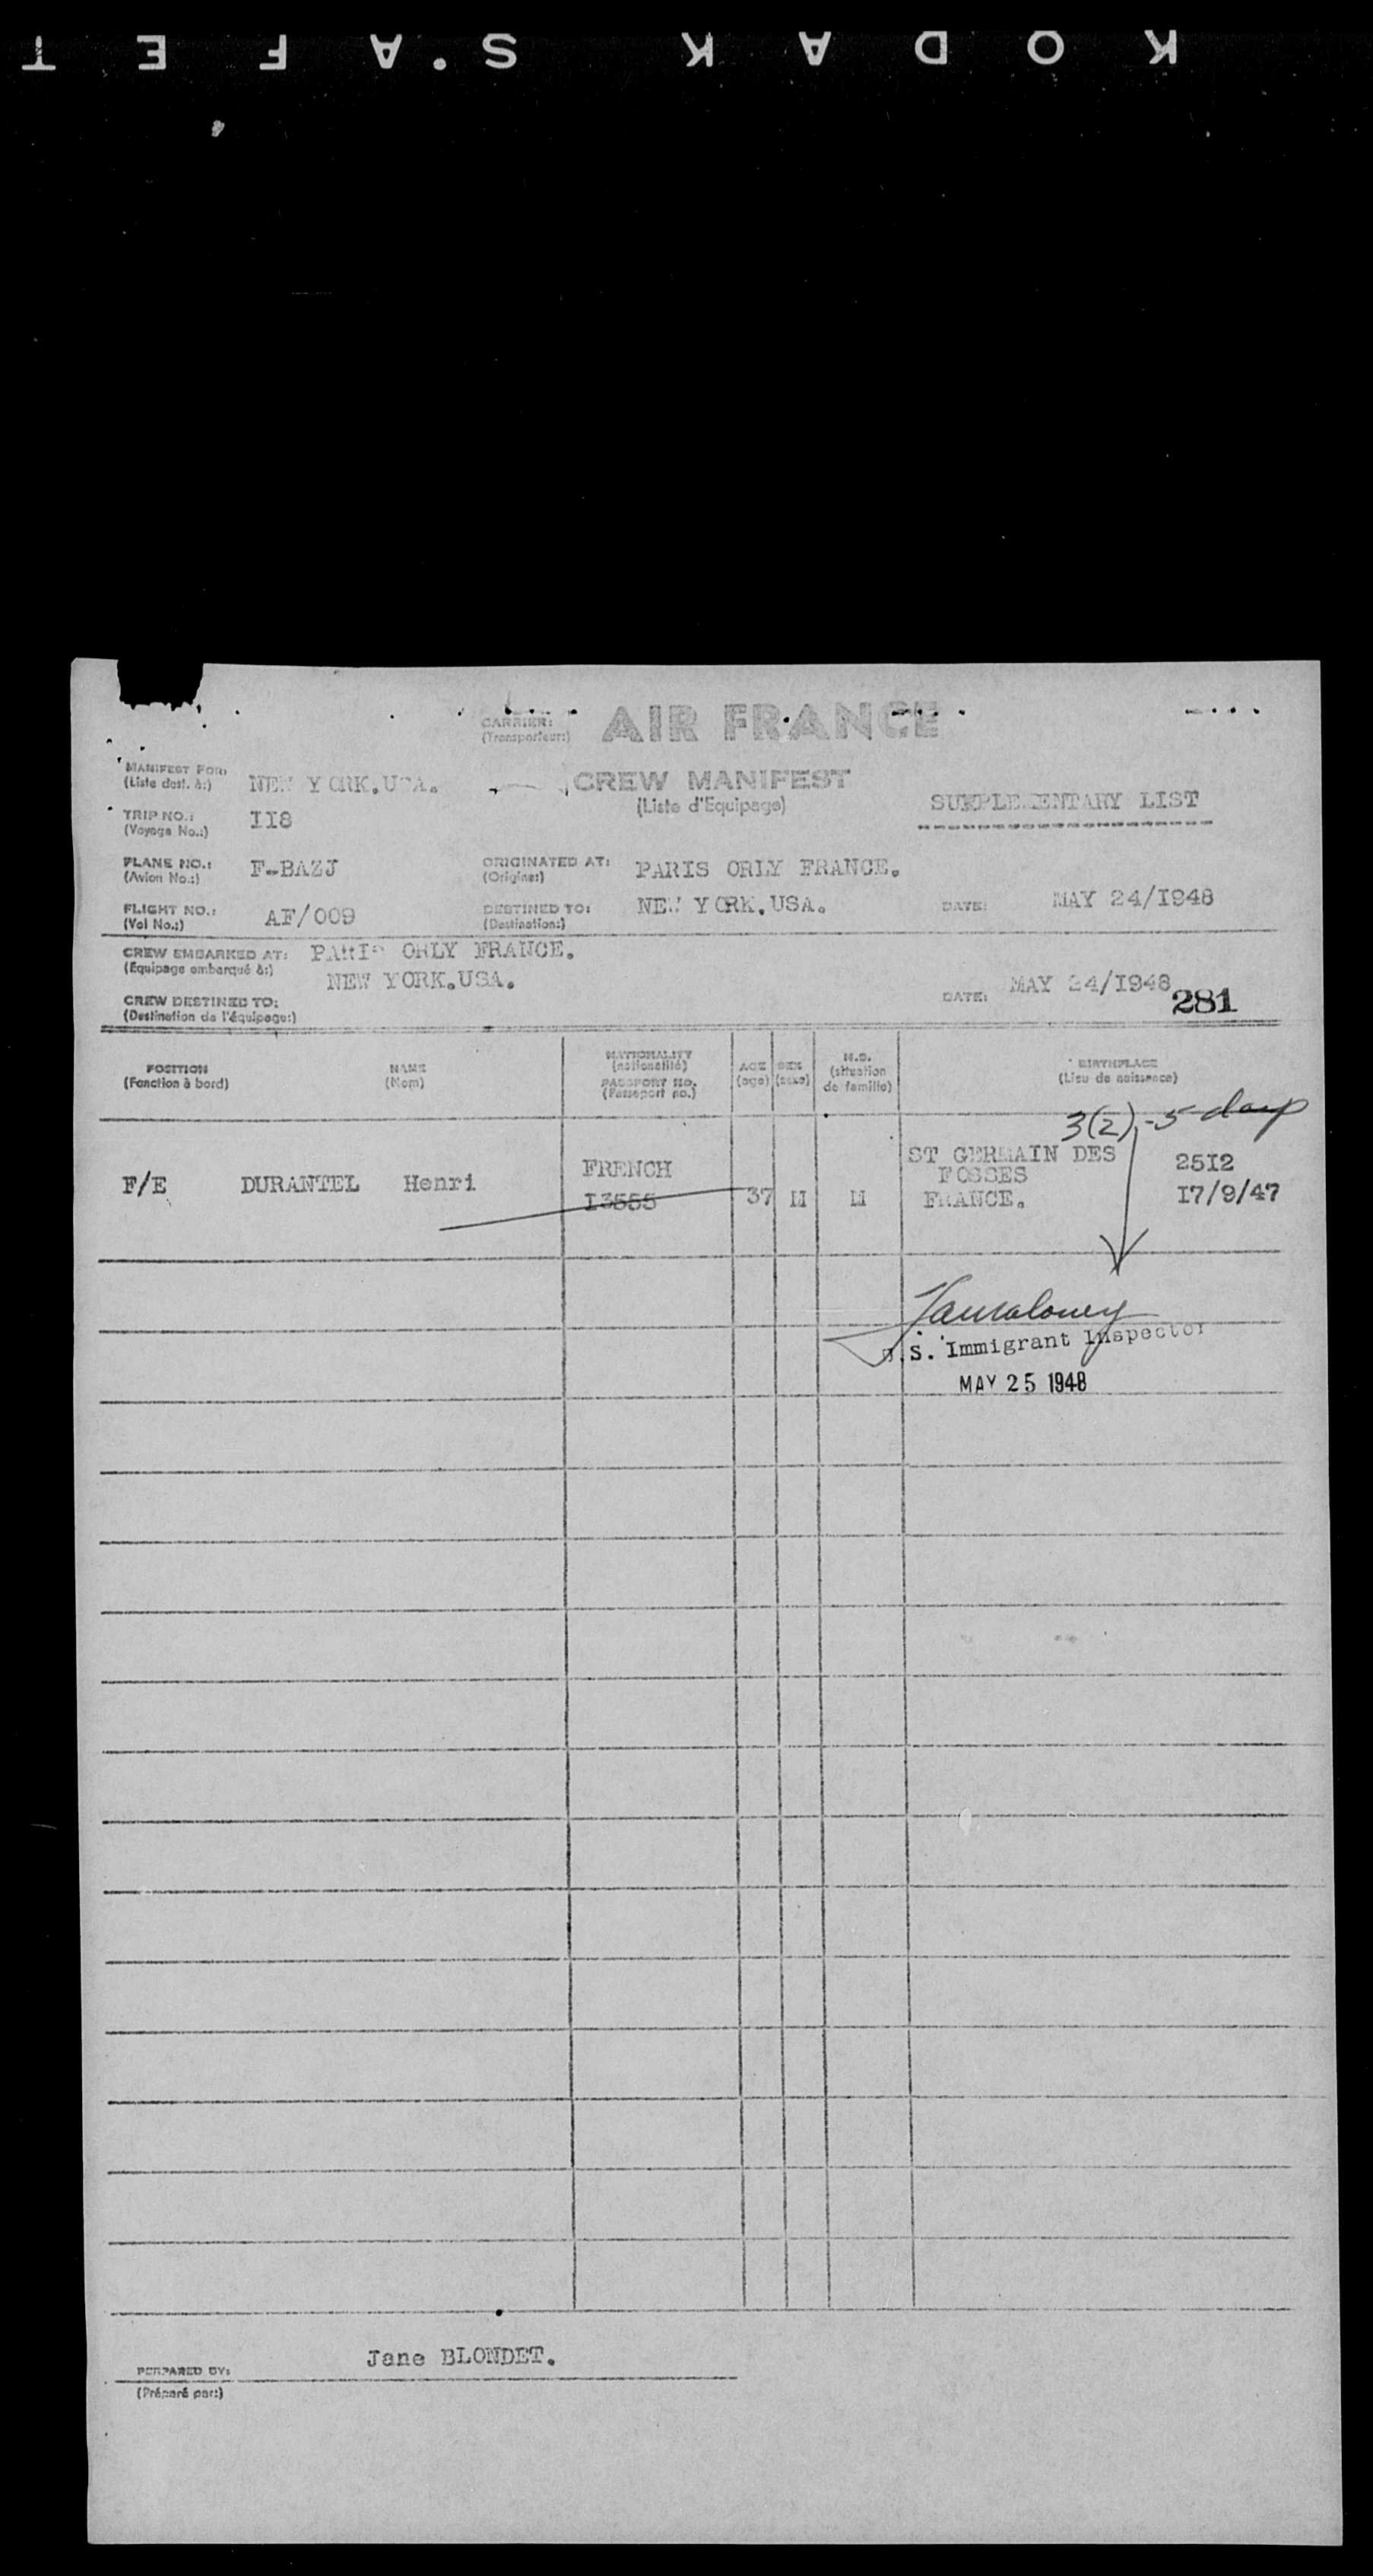 KODAK S.A.F.E.T
CARRIER: AIR FRANCE
(Transporteur:)
MANIFEST FOR: NEW YORK.USA. CREW MANIFEST
(Liste dest. à:) (Liste d'Equipage) SUPPLEMENTARY LIST
TRIP NO.: II8
(Voyage No.:)
PLANE NO.: F-BAZJ ORIGINATED AT: PARIS ORLY FRANCE.
(Avion No.:) (Origine:)
FLIGHT NO.: AF/009 DESTINED TO: NEW YORK.USA. DATE: MAY 24/I948
(Vol No.:) (Destination:)
CREW EMBARKED AT: PARIS ORLY FRANCE.
(Equipage embarqué à:)
NEW YORK.USA. DATE: MAY 24/I948
CREW DESTINED TO: 281
(Destination de l'équipage:)
POSITION NAME NATIONALITY AGE SEX M.S. BIRTHPLACE
(Fonction à bord) (Nom) (nationalité) (age) (sexe) (situation de famille) (Lieu de naissance)
PASSPORT NO.
(Passeport no.)
3(2)-5 days
F/E DURANTEL Henri FRENCH 37 M M ST GERMAIN DES 25I2
I3555 FOSSES I7/9/47
FRANCE.
U.S. Immigrant Inspector
MAY 25 1948
Jane BLONDET.
PREPARED BY:
(Préparé par:)